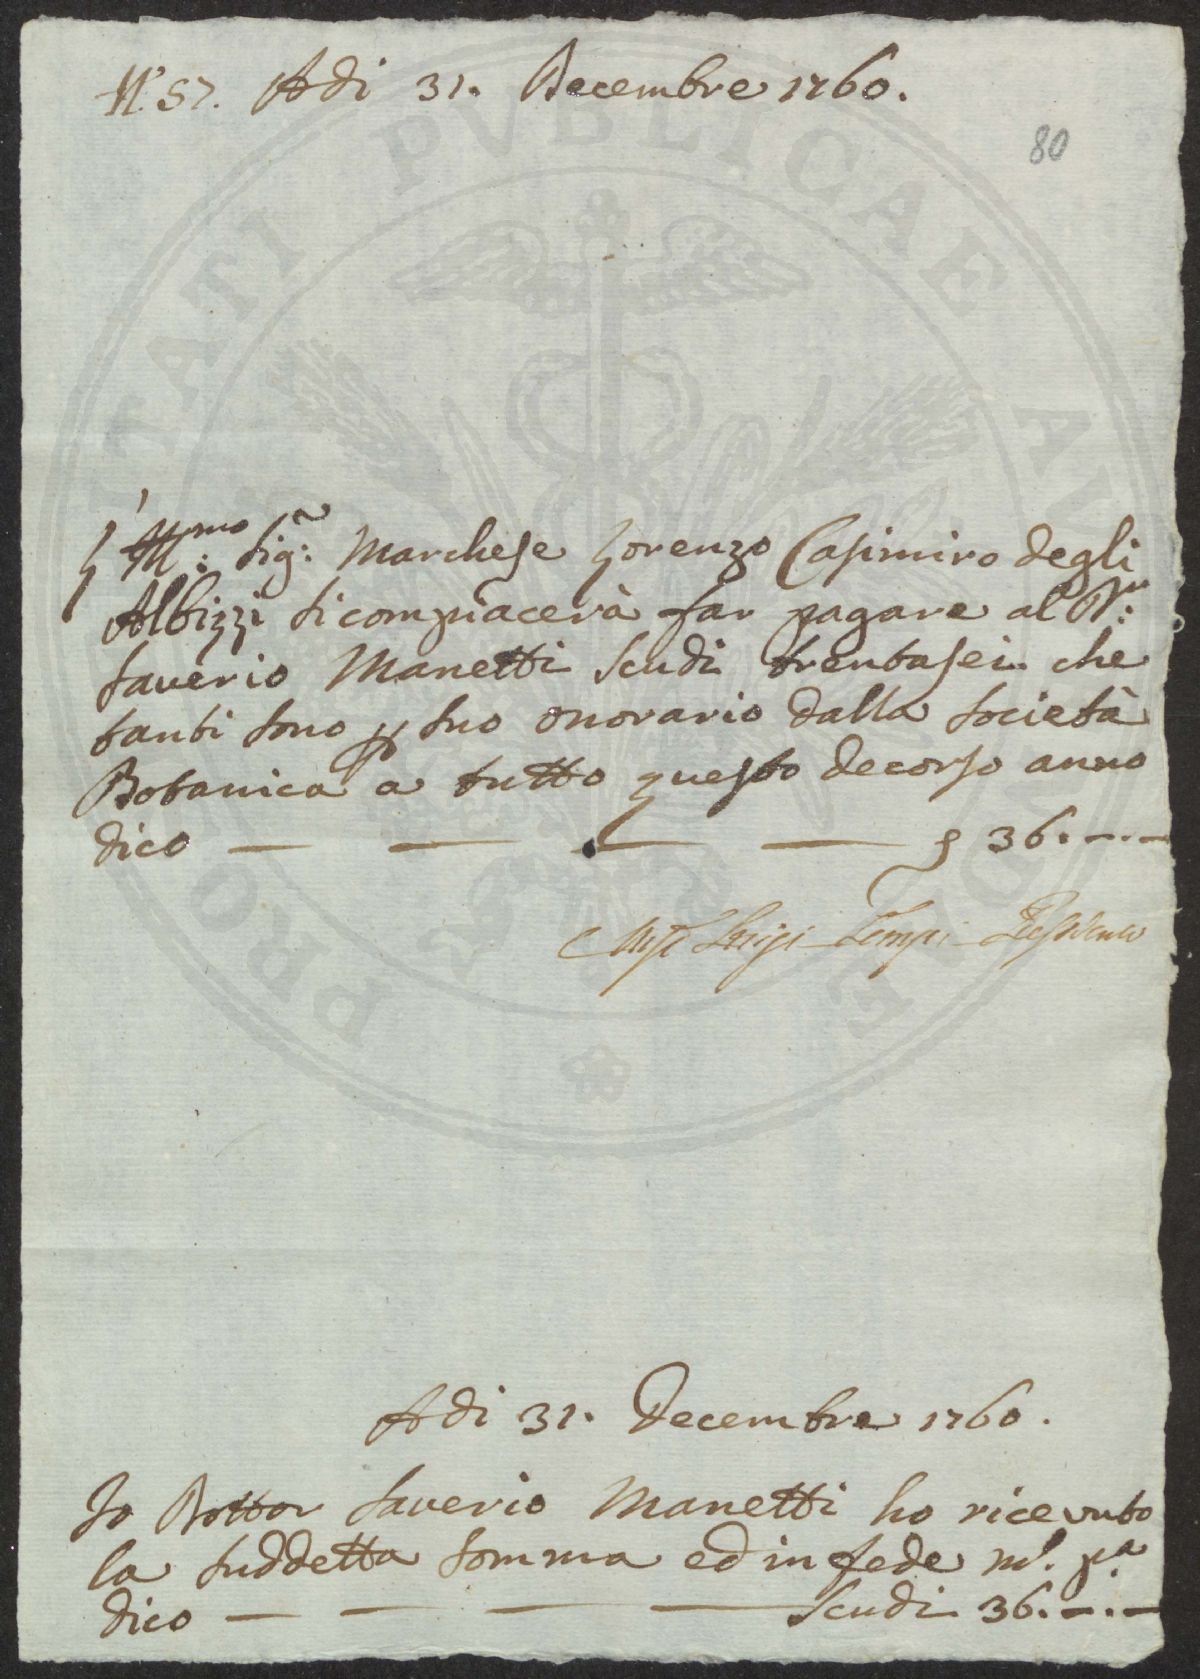 N.° 57. Adi 31. Decembre 1760.
80
L'Ill.mo Sig.r Marchese Lorenzo Casimiro degli
Albizzi si compiacerà far pagare al D.r:
Saverio Manetti Scudi trentasei che
tanti sono p suo onorario dalla Società
Botanica a tutto questo decorso anno
dico — — — — 36.—.—
Luigi Tempi Presidente
Adi 31. Decembre 1760.
Io Dottor Saverio Manetti ho ricevuto
la suddetta somma ed in fede m.o p.a
dico — — — — Scudi 36.—.—
PVBLICAE